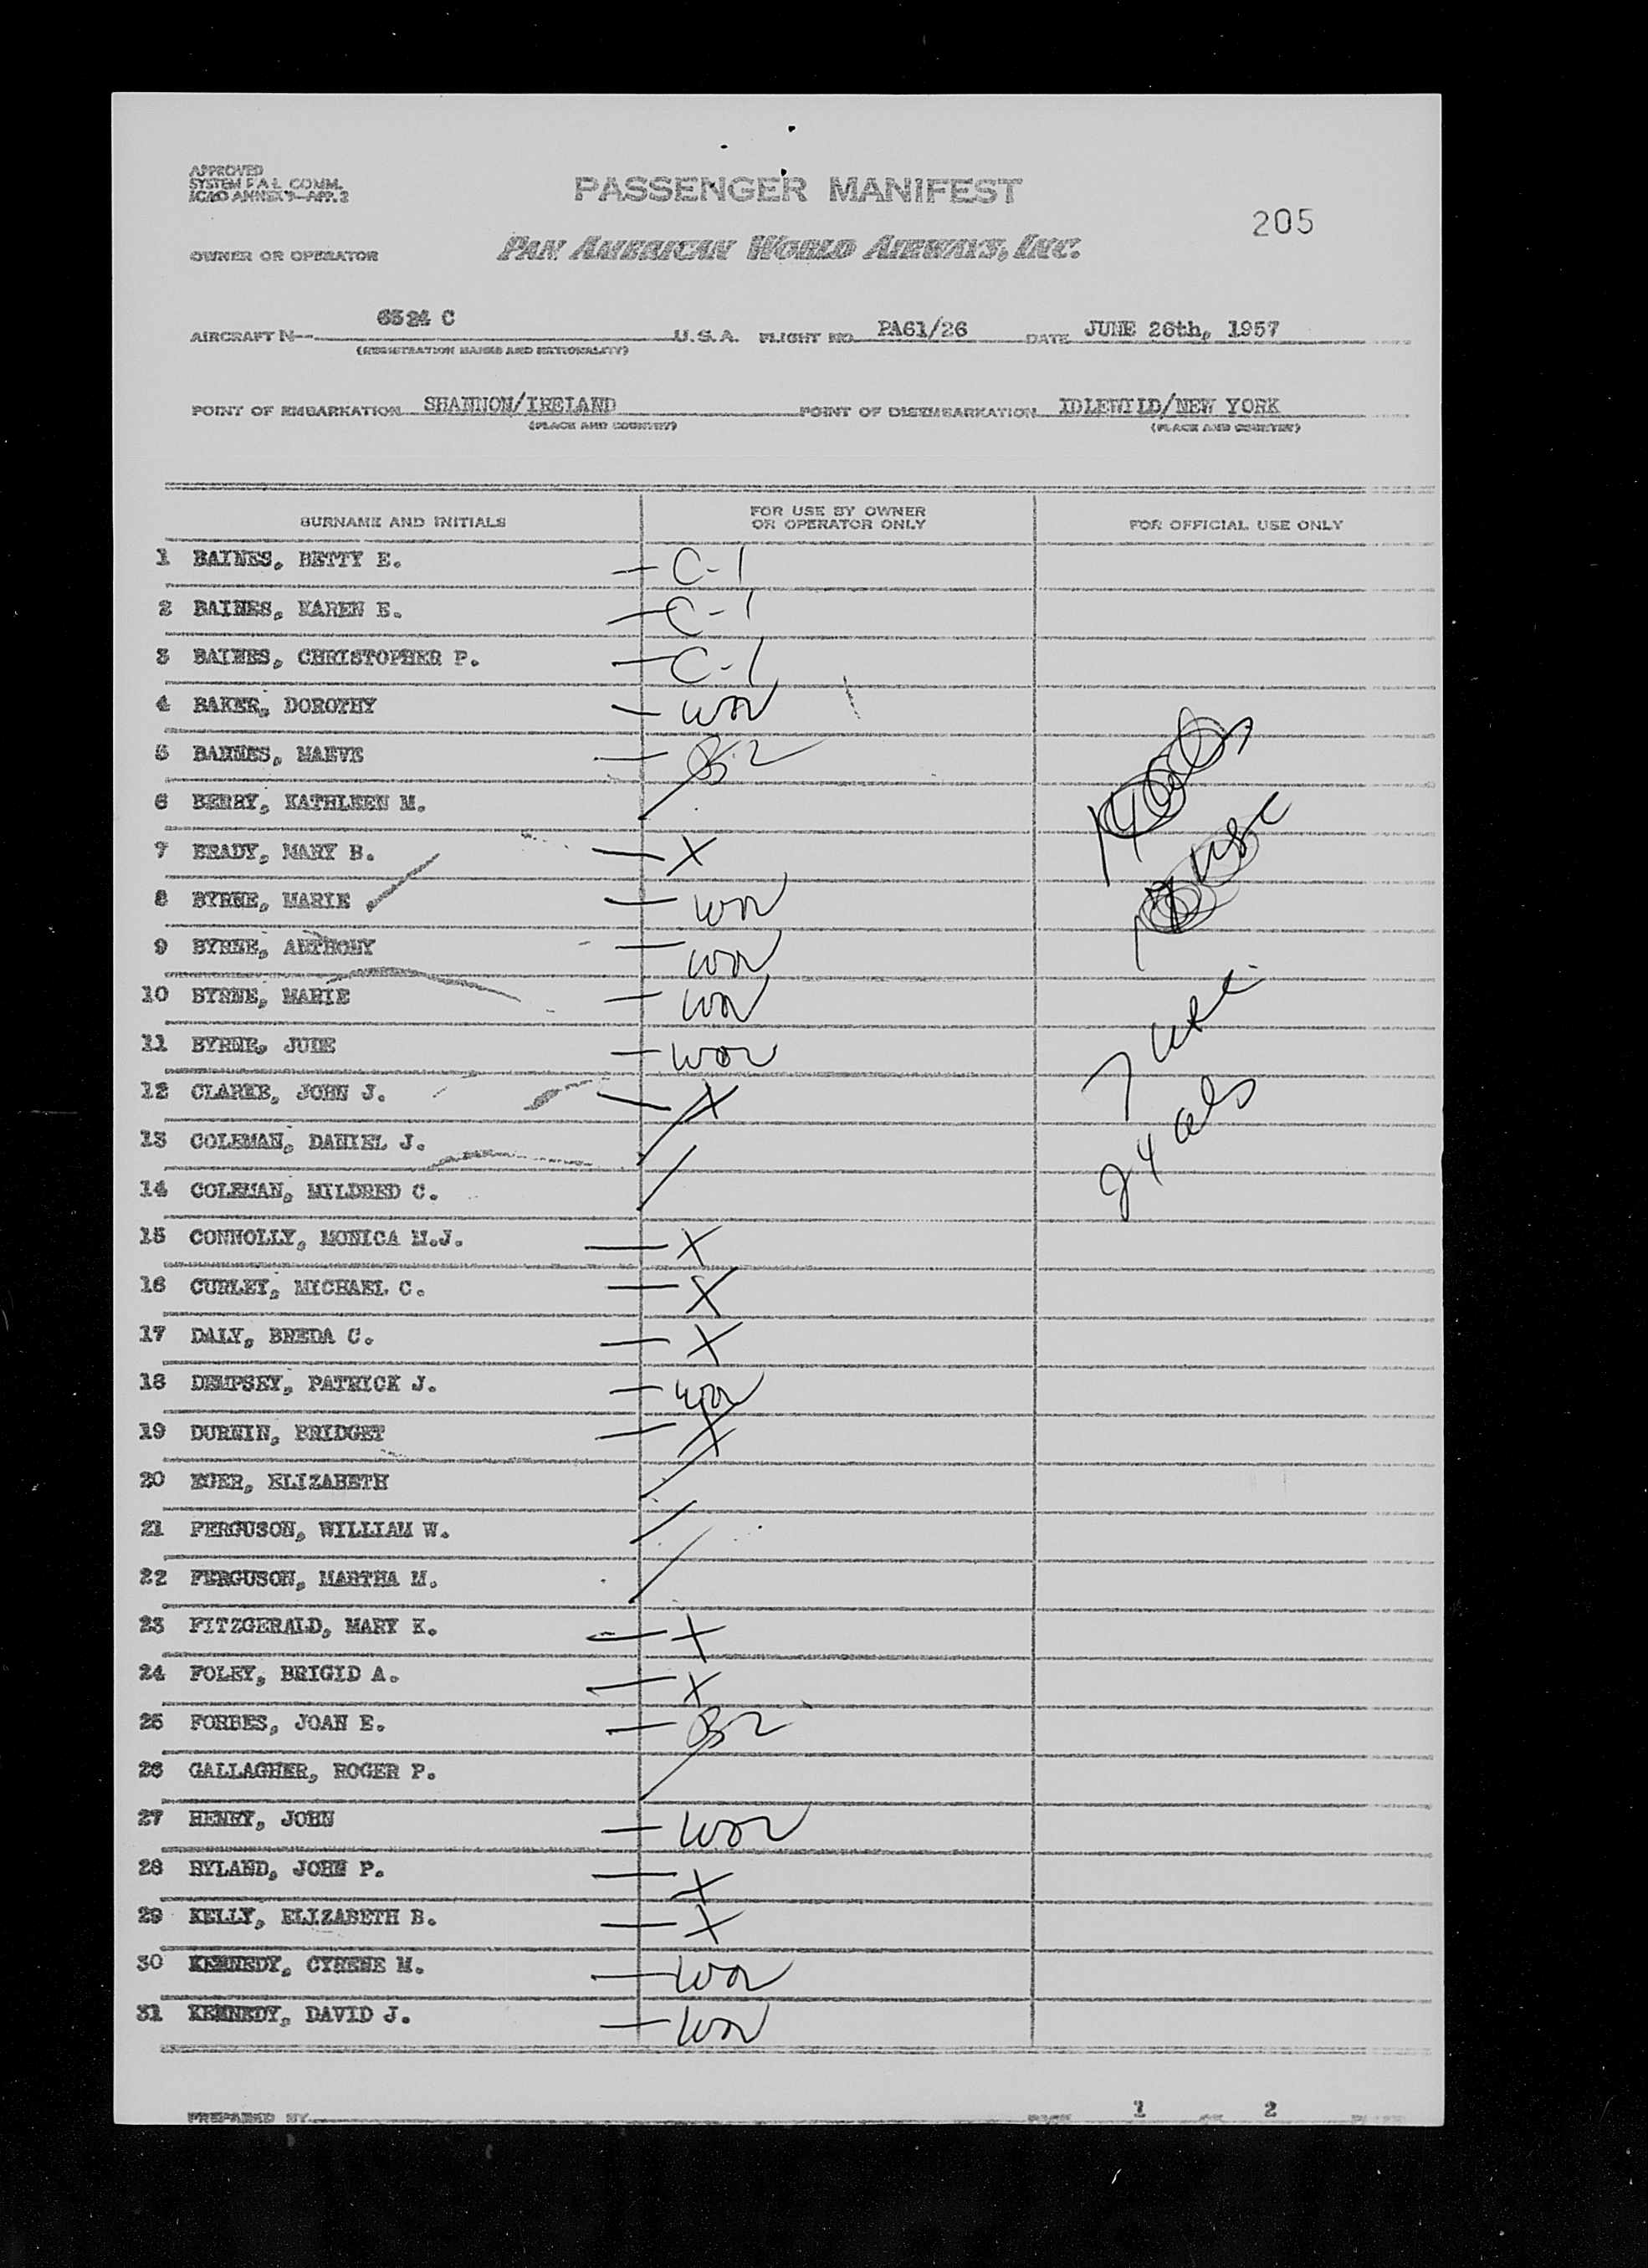 APPROVED
SYSTEM F A L COMM.
ICAO ANNEX 9—APP. 2
PASSENGER MANIFEST
205
OWNER OR OPERATOR PAN AMERICAN WORLD AIRWAYS, INC.
AIRCRAFT N-- 6524 C U.S.A. FLIGHT NO. PA61/26 DATE JUNE 26th, 1957
(REGISTRATION MARKS AND NATIONALITY)
POINT OF EMBARKATION SHANNON/IRELAND POINT OF DISEMBARKATION IDLEWILD/NEW YORK
(PLACE AND COUNTRY) (PLACE AND COUNTRY)
SURNAME AND INITIALS FOR USE BY OWNER OR OPERATOR ONLY FOR OFFICIAL USE ONLY
1 BAINES, BETTY E. — C-1
2 BAINES, KAREN E. — C-1
3 BAINES, CHRISTOPHER P. — C-1
4 BAKER, DOROTHY
5 BARNES, MAEVE — B-2
6 BERRY, KATHLEEN M.
7 BRADY, MARY B. — X
8 BYRNE, MARIE
9 BYRNE, ANTHONY
10 BYRNE, MARIE
11 BYRNE, JUDE
12 CLARKE, JOHN J. — X
13 COLEMAN, DANIEL J.
14 COLEMAN, MILDRED C.
15 CONNOLLY, MONICA M.J. — X
16 CURLEY, MICHAEL C. — X
17 DALY, BREDA C. — X
18 DEMPSEY, PATRICK J.
19 DURNIN, BRIDGET — X
20 EGER, ELIZABETH
21 FERGUSON, WILLIAM W.
22 FERGUSON, MARTHA M.
23 FITZGERALD, MARY K. — X
24 FOLEY, BRIGID A. — X
25 FORBES, JOAN E. — B2
26 GALLAGHER, ROGER P.
27 HENRY, JOHN
28 HYLAND, JOHN P. — X
29 KELLY, ELIZABETH B. — X
30 KENNEDY, CYRENE M.
31 KENNEDY, DAVID J.
usc
7
24 als
PREPARED BY PAGE 1 OF 2